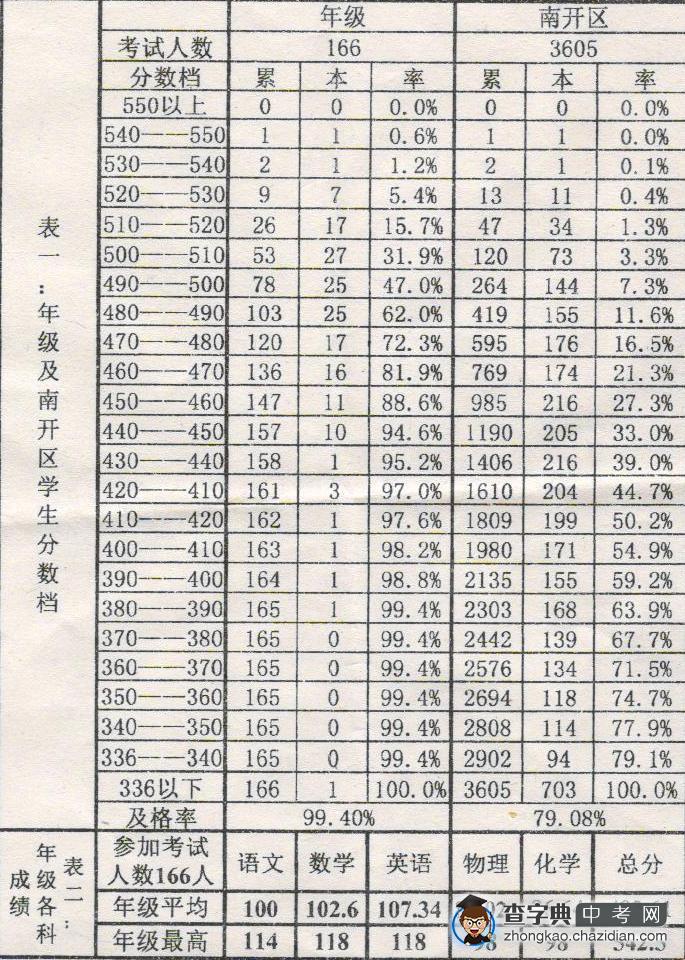 年级 南开区
考试人数 166 3605
分数档 累 本 率 累 本 率
550以上 0 0 0.0% 0 0 0.0%
540——550 1 1 0.6% 1 1 0.0%
530——540 2 1 1.2% 2 1 0.1%
520——530 9 7 5.4% 13 11 0.4%
510——520 26 17 15.7% 47 34 1.3%
500——510 53 27 31.9% 120 73 3.3%
490——500 78 25 47.0% 264 144 7.3%
480——490 103 25 62.0% 419 155 11.6%
470——480 120 17 72.3% 595 176 16.5%
460——470 136 16 81.9% 769 174 21.3%
450——460 147 11 88.6% 985 216 27.3%
440——450 157 10 94.6% 1190 205 33.0%
430——440 158 1 95.2% 1406 216 39.0%
420——410 161 3 97.0% 1610 204 44.7%
410——420 162 1 97.6% 1809 199 50.2%
400——410 163 1 98.2% 1980 171 54.9%
390——400 164 1 98.8% 2135 155 59.2%
380——390 165 1 99.4% 2303 168 63.9%
370——380 165 0 99.4% 2442 139 67.7%
360——370 165 0 99.4% 2576 134 71.5%
350——360 165 0 99.4% 2694 118 74.7%
340——350 165 0 99.4% 2808 114 77.9%
336——340 165 0 99.4% 2902 94 79.1%
336以下 166 1 100.0% 3605 703 100.0%
及格率 99.40% 79.08%
表一：年级及南开区学生分数档
表二：
年级各科
成绩
参加考试
人数166人
语文 数学 英语 物理 化学 总分
年级平均 100 102.6 107.34
年级最高 114 118 118 98 98
查字典 中考网
zhongkao.chazidian.com